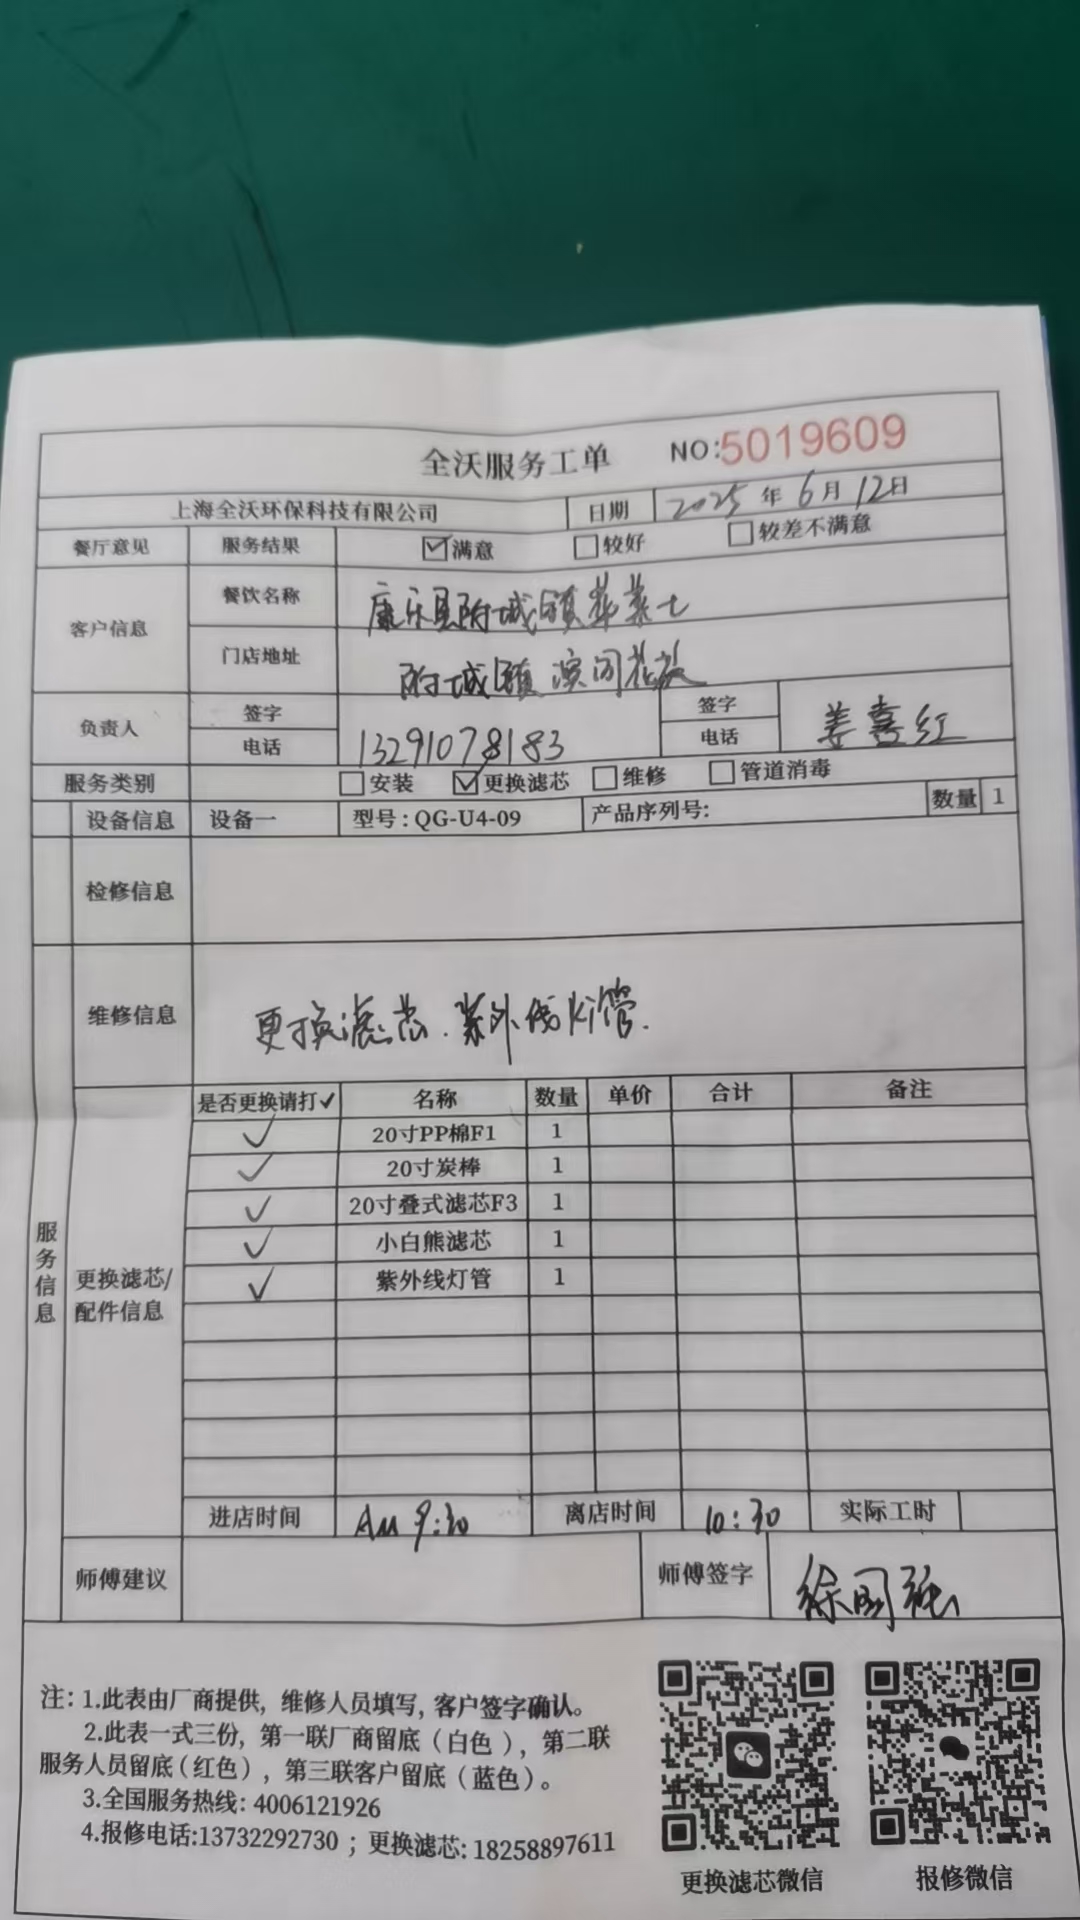 全沃服务工单 NO:5019609
上海全沃环保科技有限公司 日期 2025年6月12日
餐厅意见 服务结果 ☑满意 □较好 □较差不满意
客户信息 餐饮名称 康乐县附城镇华莱士
门店地址 附城镇滨河花苑
负责人 签字 签字
电话 13291078183 电话 姜喜红
服务类别 □安装 ☑更换滤芯 □维修 □管道消毒
设备信息 设备一 型号:QG-U4-09 产品序列号: 数量 1
检修信息
维修信息 更换滤芯.紫外线灯管.
服务信息
更换滤芯/配件信息
是否更换请打✓ 名称 数量 单价 合计 备注
✓ 20寸PP棉F1 1
✓ 20寸炭棒 1
✓ 20寸叠式滤芯F3 1
✓ 小白熊滤芯 1
✓ 紫外线灯管 1
进店时间 AM 9:30 离店时间 10:30 实际工时
师傅建议 师傅签字 徐国强
注:1.此表由厂商提供,维修人员填写,客户签字确认。
2.此表一式三份,第一联厂商留底(白色),第二联
服务人员留底(红色),第三联客户留底(蓝色)。
3.全国服务热线:4006121926
4.报修电话:13732292730;更换滤芯:18258897611
更换滤芯微信 报修微信